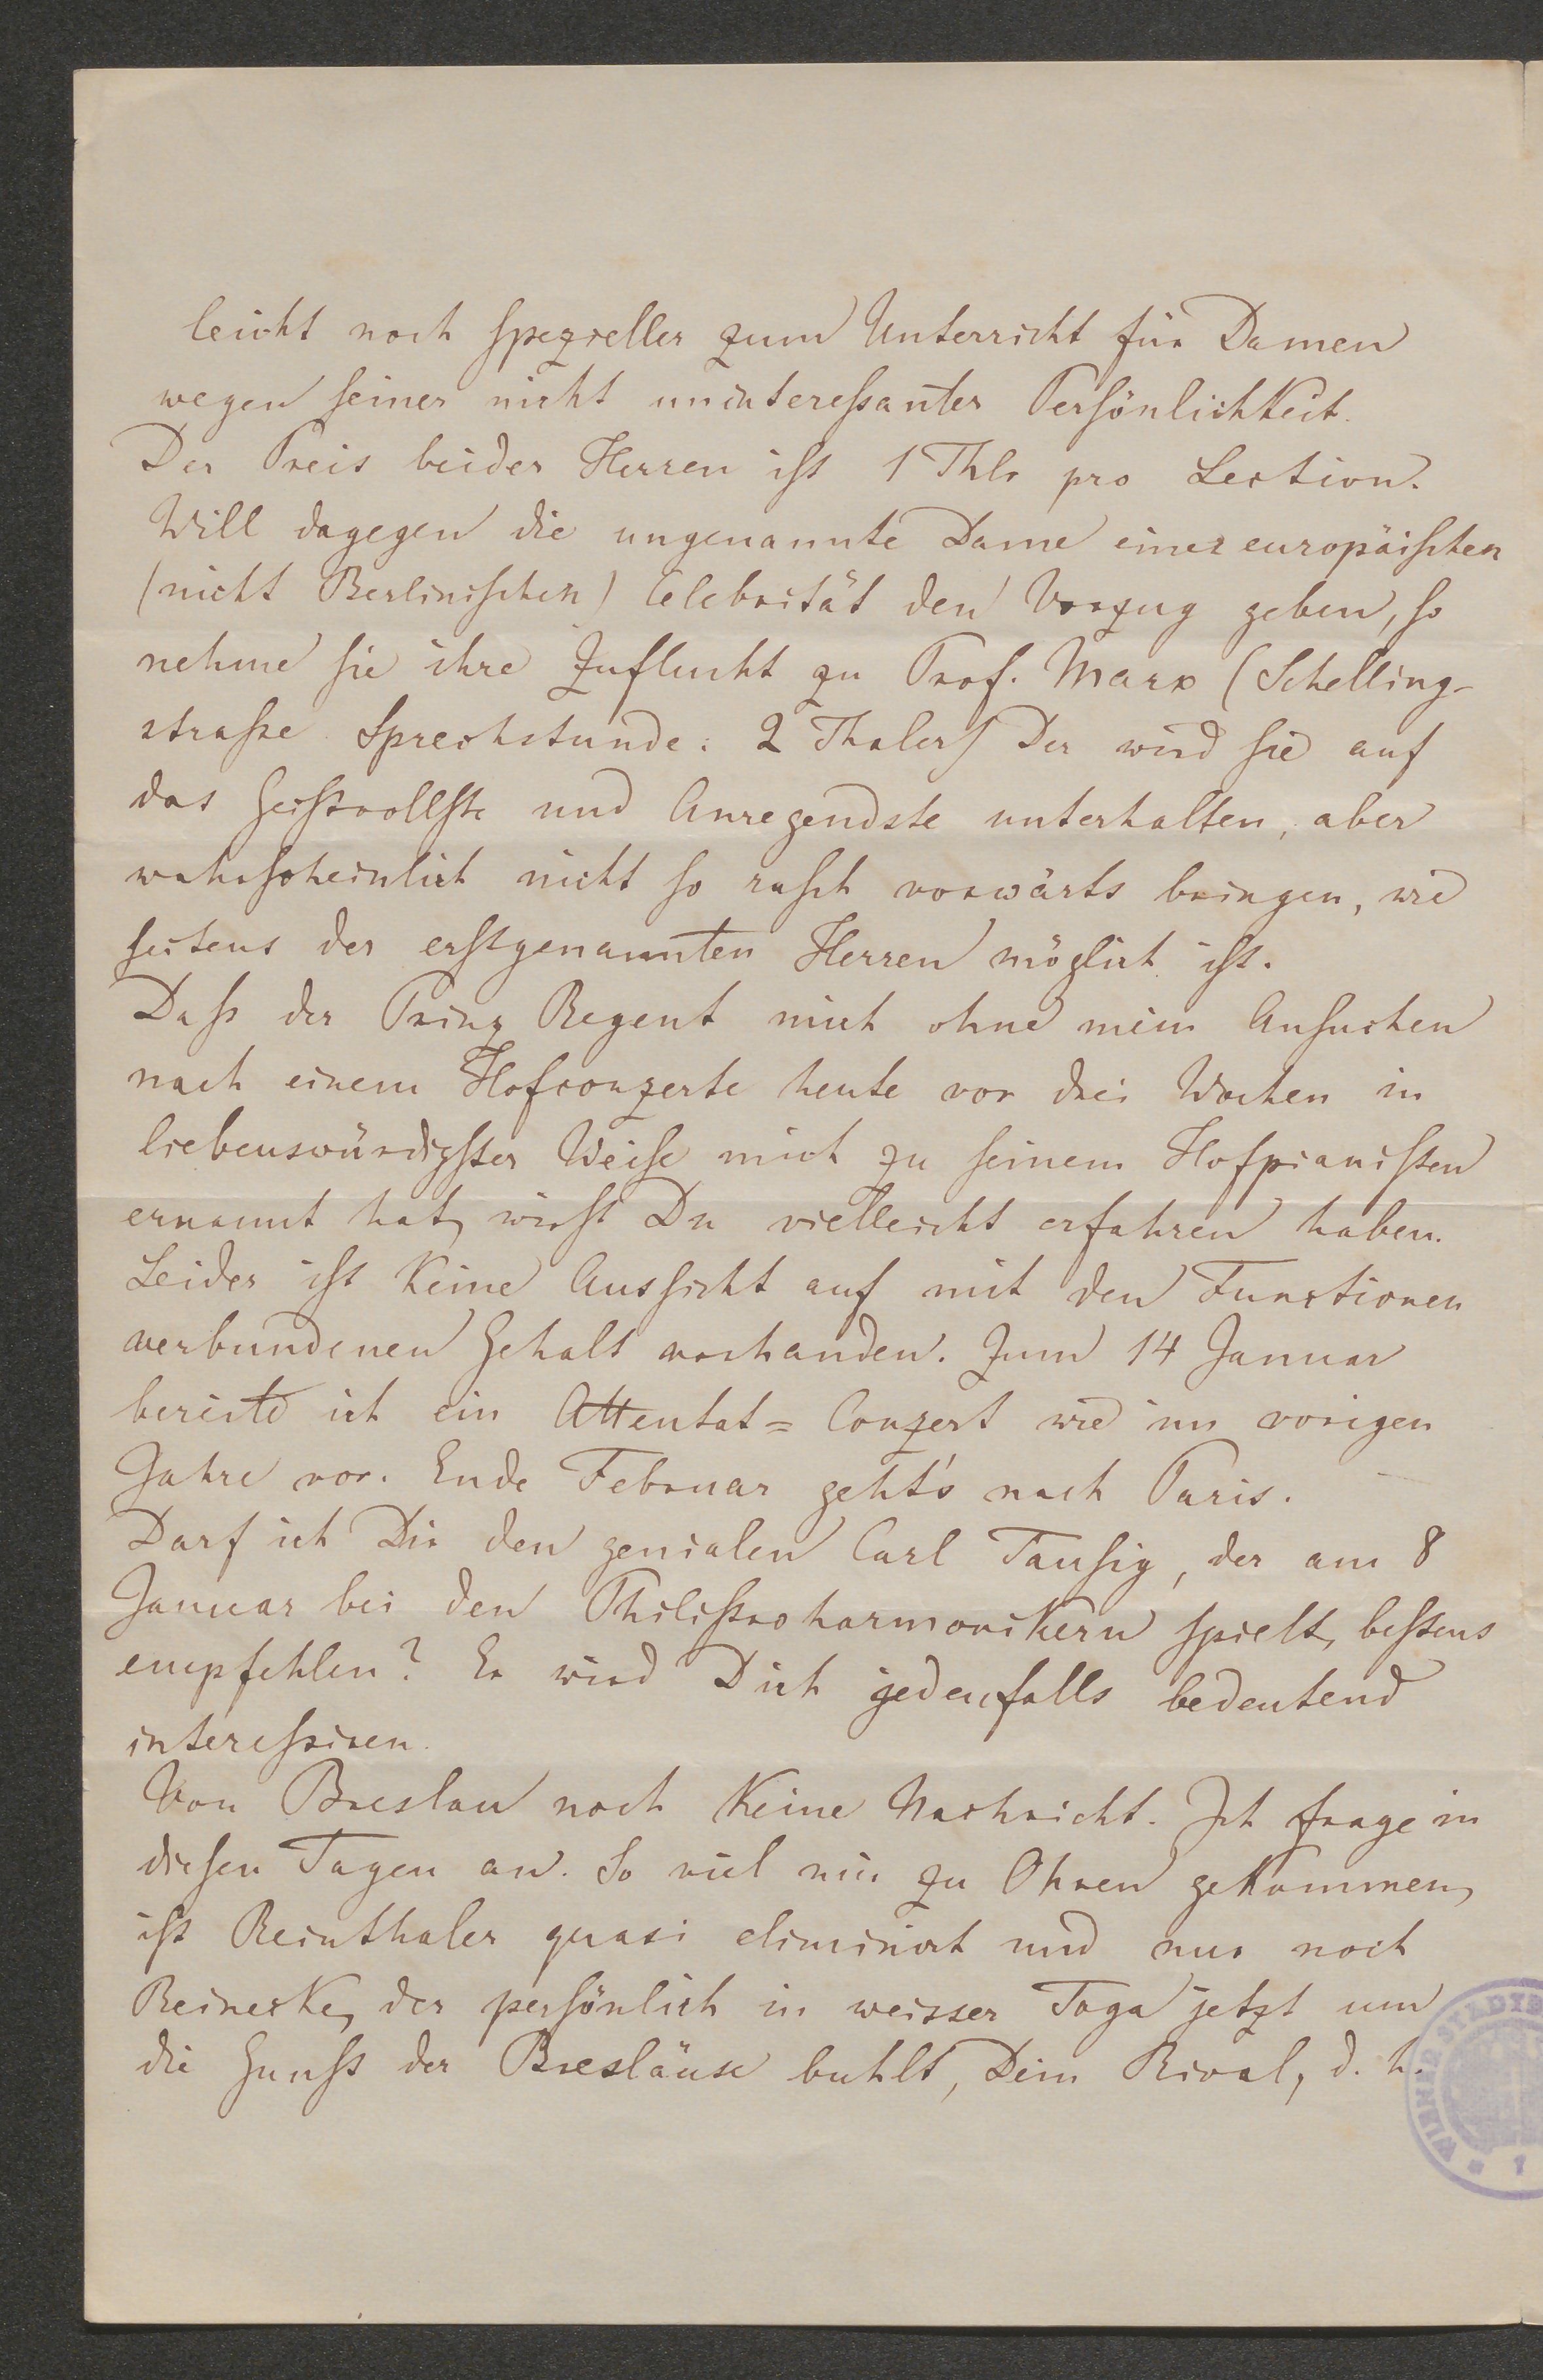 leicht noch spezieller zum Unterricht für Damen
wegen seiner nicht uninteressanter Persönlichkeit.
Der Preis beider Herren ist 1 Thlr pro Lection.
Will dagegen die ungenannte Dame einer europäischen
(nicht Berlinischen) Celebrität den Vorzug geben, so
nehme sie ihre Zuflucht zu Prof. Marx (Schelling-
strasse Sprechstunde: 2 Thaler) Der wird sie auf
das Geistvollste und Anregendste unterhalten, aber
wahrscheinlich nicht so rasch vorwärts bringen, wie
seitens der erstgenannten Herren möglich ist.
Dass der Prinz Regent mich ohne mein Ansuchen
nach einem Hofconzerte heute vor drei Wochen in
liebenswürdigster Weise mich zu seinem Hofpianisten
ernannt hat, wirst Du vielleicht erfahren haben.
Leider ist keine Aussicht auf mit den Functionen
verbundenen Gehalt vorhanden. Zum 14 Januar
bereite ich ein Attentat=Conzert wie im vorigen
Jahre vor. Ende Februar geht's nach Paris.
Darf ich Dir den genialen Carl Tausig, der am 8
Januar bei den Philistroharmonikern spielt, bestens
empfehlen? Er wird Dich jedenfalls bedeutend
interessiren.
Von Breslau noch keine Nachricht. Ich frage in
diesen Tagen an. So viel mir zu Ohren gekommen,
ist Reinthaler quasi eliminirt und nur noch
Reinecke, der persönlich in weisser Toga jetzt um
die Gunst der Bresläuse buhlt, Dein Rival, d. h.
WIENER STÄDT